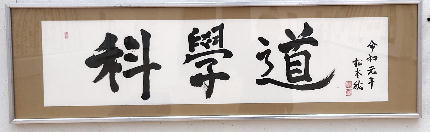 科學道
令和元年
松本紘